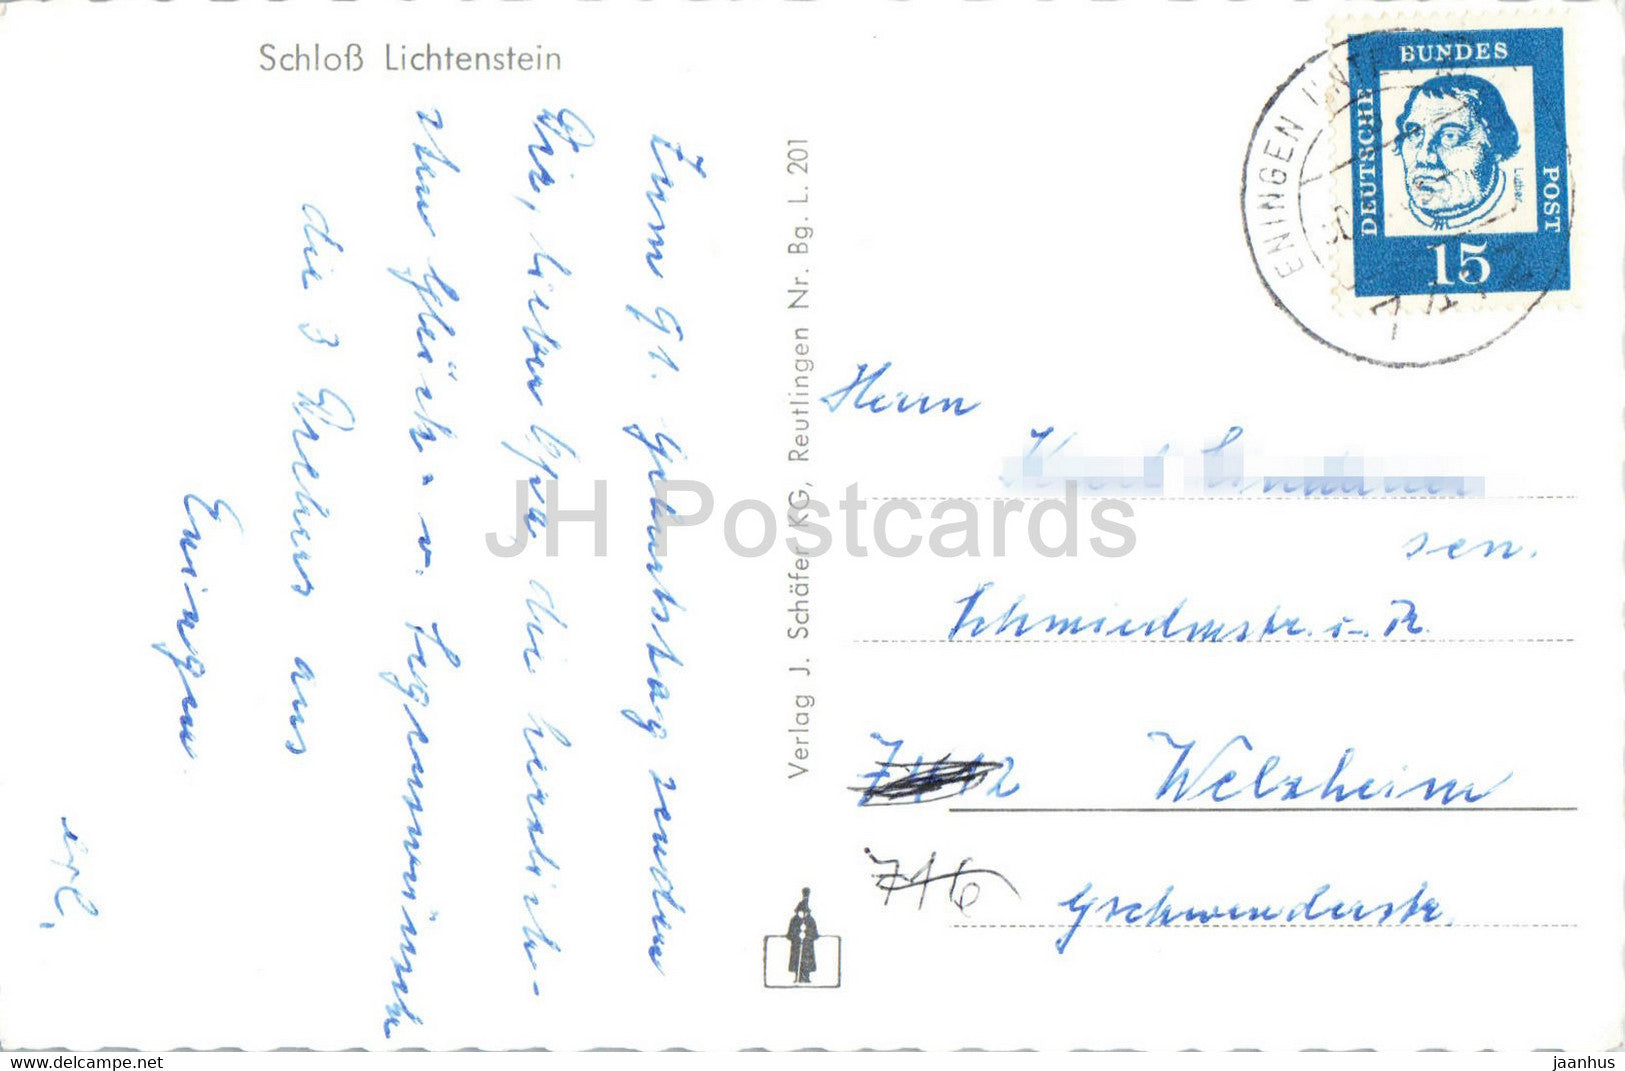 Schloß Lichtenstein
Zum 91. Geburtstag senden
Dir, lieber Opa, die herzlich-
sten Glück- u. Segenswünsche
die 3 Drehers aus
Eningen
Verlag J. Schäfer KG, Reutlingen Nr. Bg. L. 201
ENINGEN UNTER
DEUTSCHE
BUNDES
POST
Luther
15
Herrn
sen.
Schmiedmstr. i. R.
Welzheim
716
Gschwenderstr.
JH Postcards
delcampe.net
jaanhus